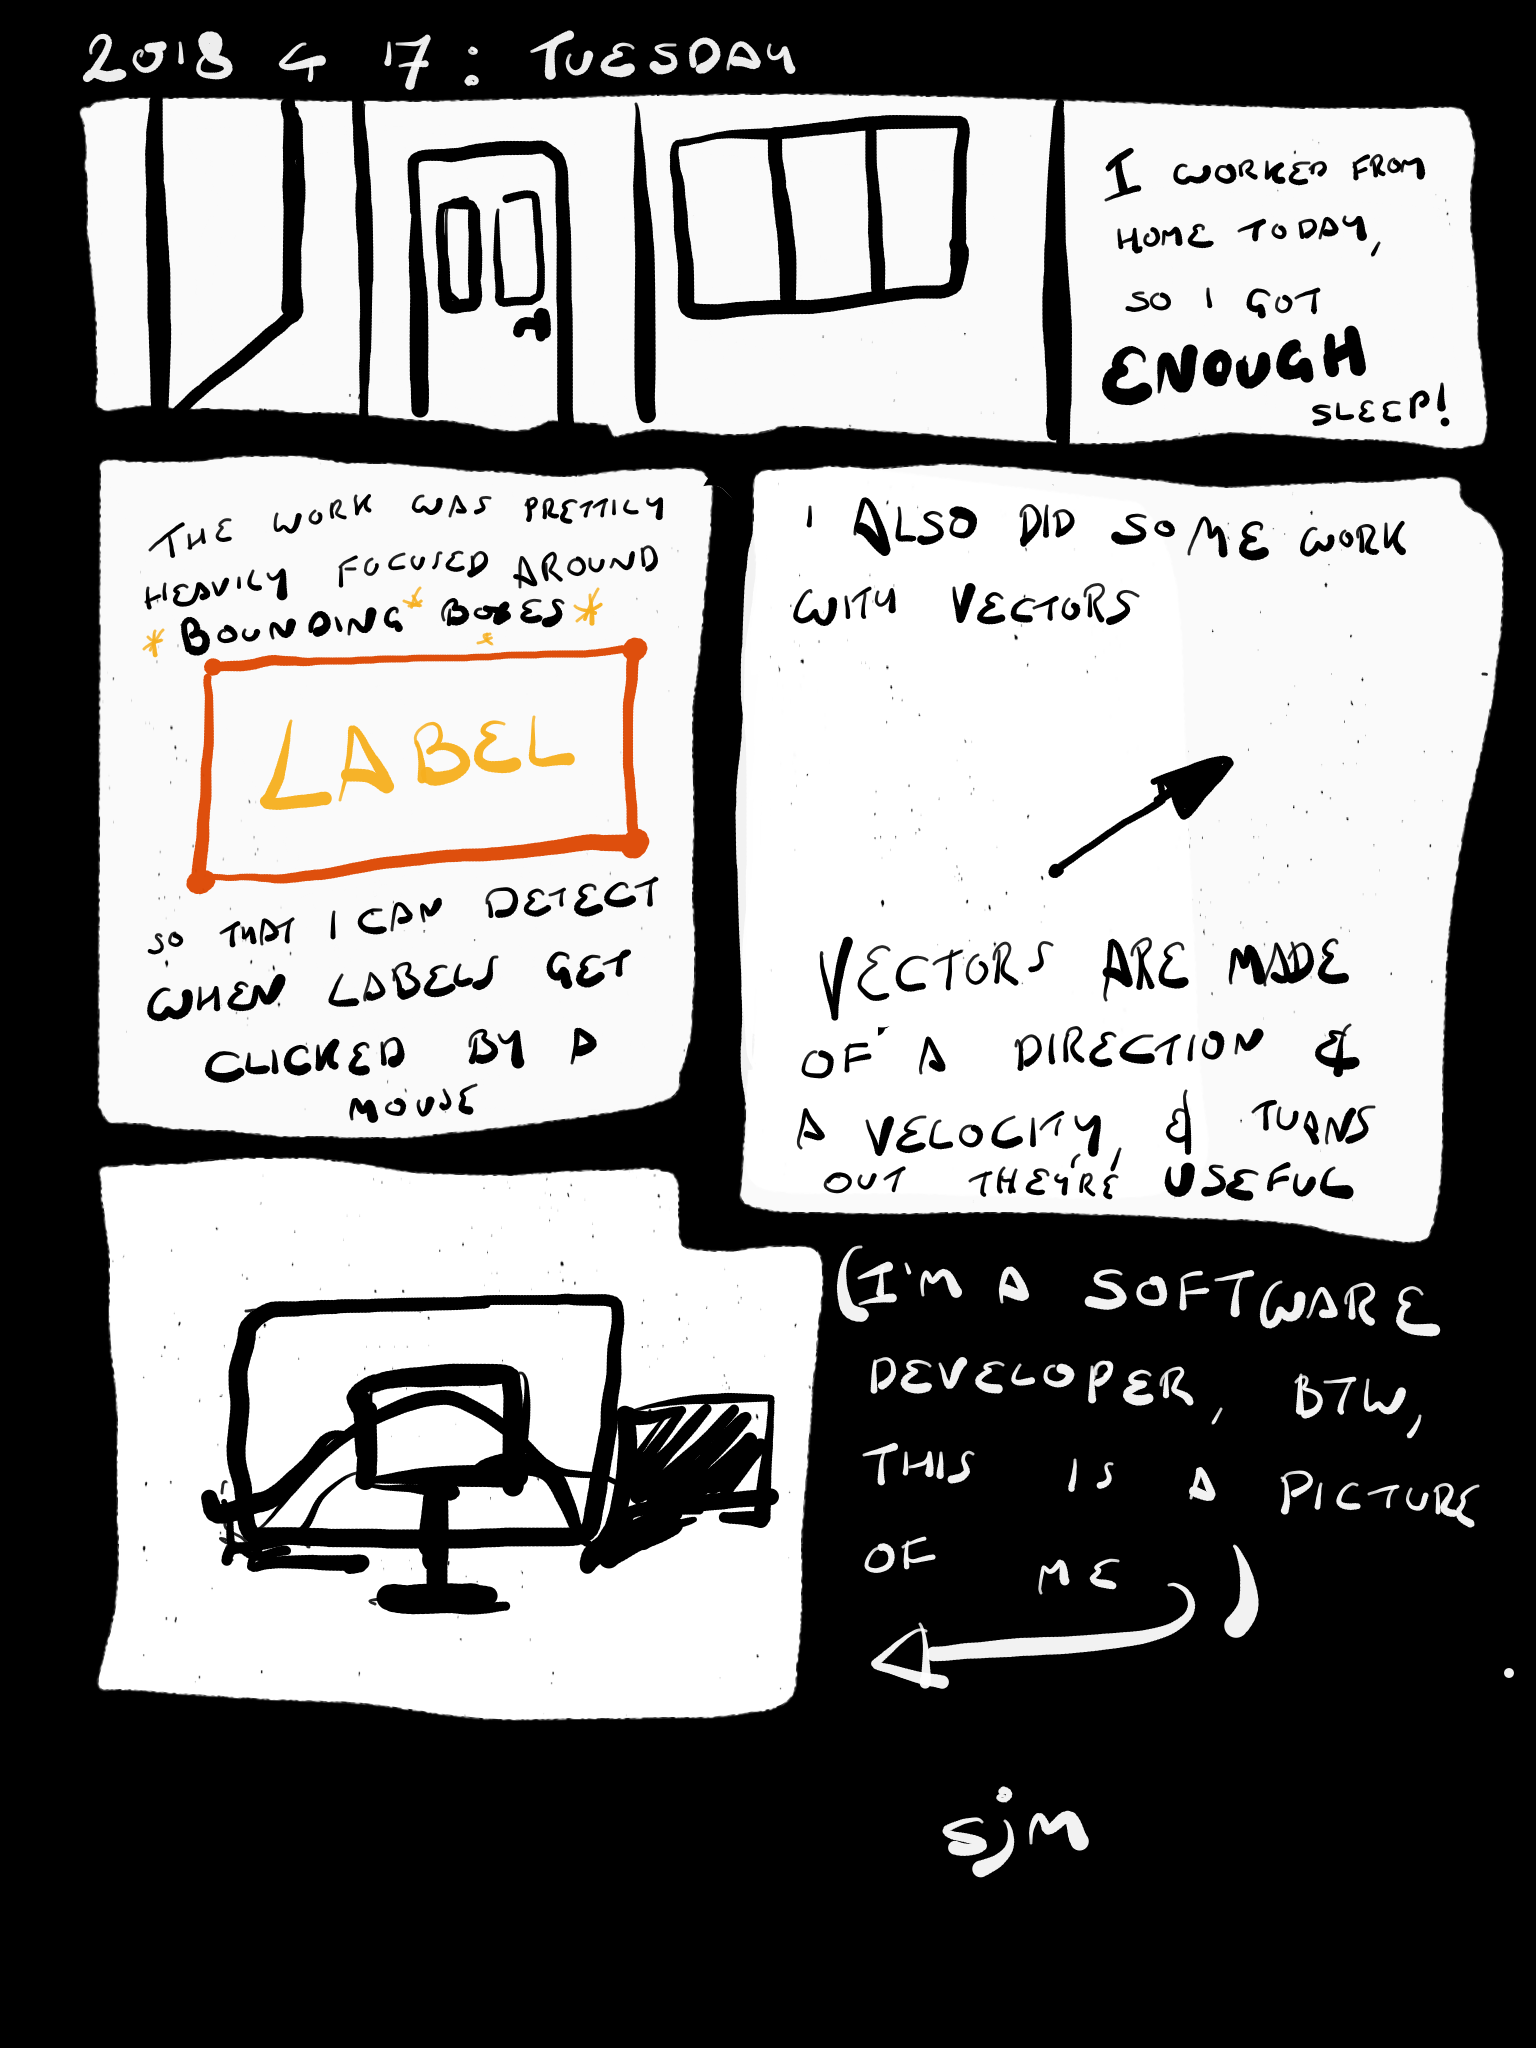 2018 4 17: TUESDAY
I WORKED FROM
HOME TODAY,
SO I GOT
ENOUGH
SLEEP!
THE WORK WAS PRETTILY
HEAVILY FOCUSED AROUND
* BOUNDING * BOXES *
*
LABEL
SO THAT I CAN DETECT
WHEN LABELS GET
CLICKED BY A
MOUSE
I ALSO DID SOME WORK
WITH VECTORS
VECTORS ARE MADE
OF A DIRECTION &
A VELOCITY, & TURNS
OUT THEY'RE USEFUL
(I'M A SOFTWARE
DEVELOPER, BTW,
THIS IS A PICTURE
OF ME )
sjm